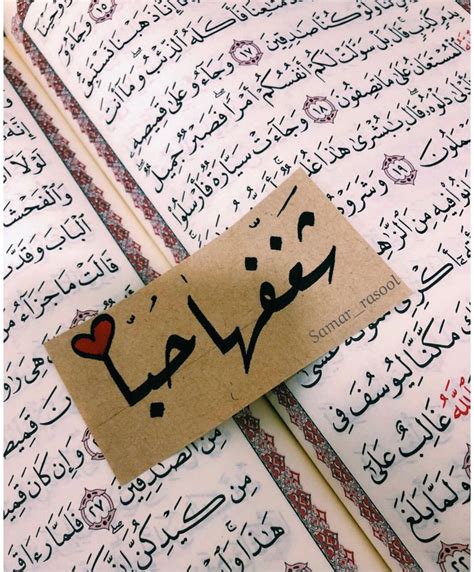 ١٥ وَجَآءُو
ذَهَبْنَا نَسْتَبِقُ
فَأَكَلَهُ ٱلذِّئْبُ وَمَآ أَنتَ
صَٰدِقِينَ ١٧ وَجَآءُو عَلَىٰ قَمِيصِهِۦ
كَذِبٍ قَالَ بَلْ سَوَّلَتْ لَكُمْ أَنفُسُكُمْ أَمْرًا فَصَبْرٌ جَمِيلٌ
ٱلْمُسْتَعَانُ عَلَىٰ مَا تَصِفُونَ ١٨ وَجَآءَتْ سَيَّارَةٌ فَأَرْسَلُوا۟
دَلْوَهُۥ قَالَ يَٰبُشْرَىٰ هَٰذَا
١٩ وَشَرَوْهُ
فِيهِ مِنَ
مَكَّنَّا لِيُوسُفَ فِى
ٱللَّهُ غَالِبٌ عَلَىٰٓ
وَلَمَّا بَلَغَ
شَغَفَهَا حُبًّا
Samar_rasool
وَٱلْفَحْشَ
ٱلْبَابَ وَقَدَّ
قَالَتْ مَا جَزَآءُ
هِىَ
وَإِن كَانَ قَمِيصُ
مِنَ ٱلصَّٰدِقِينَ
٢٧ فَلَمَّا رَءَا
مِن كَيْدِكُنَّ إِنَّ
هَٰذَا